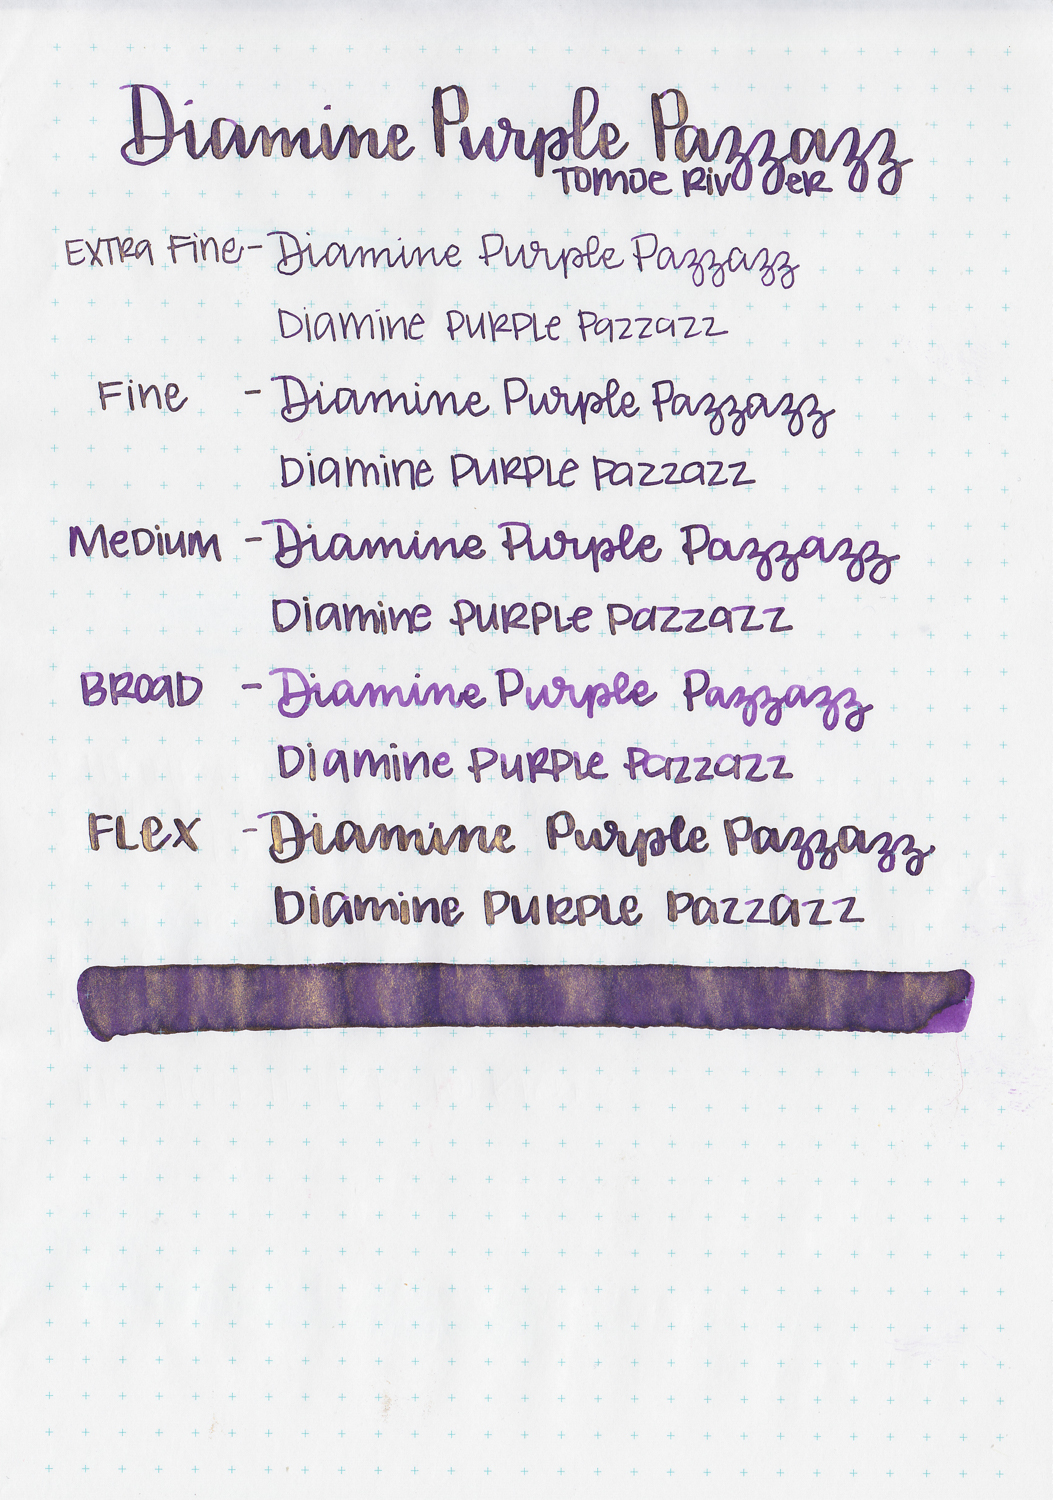 Diamine Purple Pazzazz
Tomoe River
Extra Fine - Diamine Purple Pazzazz
Diamine Purple Pazzazz
Fine - Diamine Purple Pazzazz
Diamine Purple Pazzazz
Medium - Diamine Purple Pazzazz
Diamine Purple Pazzazz
Broad - Diamine Purple Pazzazz
Diamine Purple Pazzazz
Flex - Diamine Purple Pazzazz
Diamine Purple Pazzazz